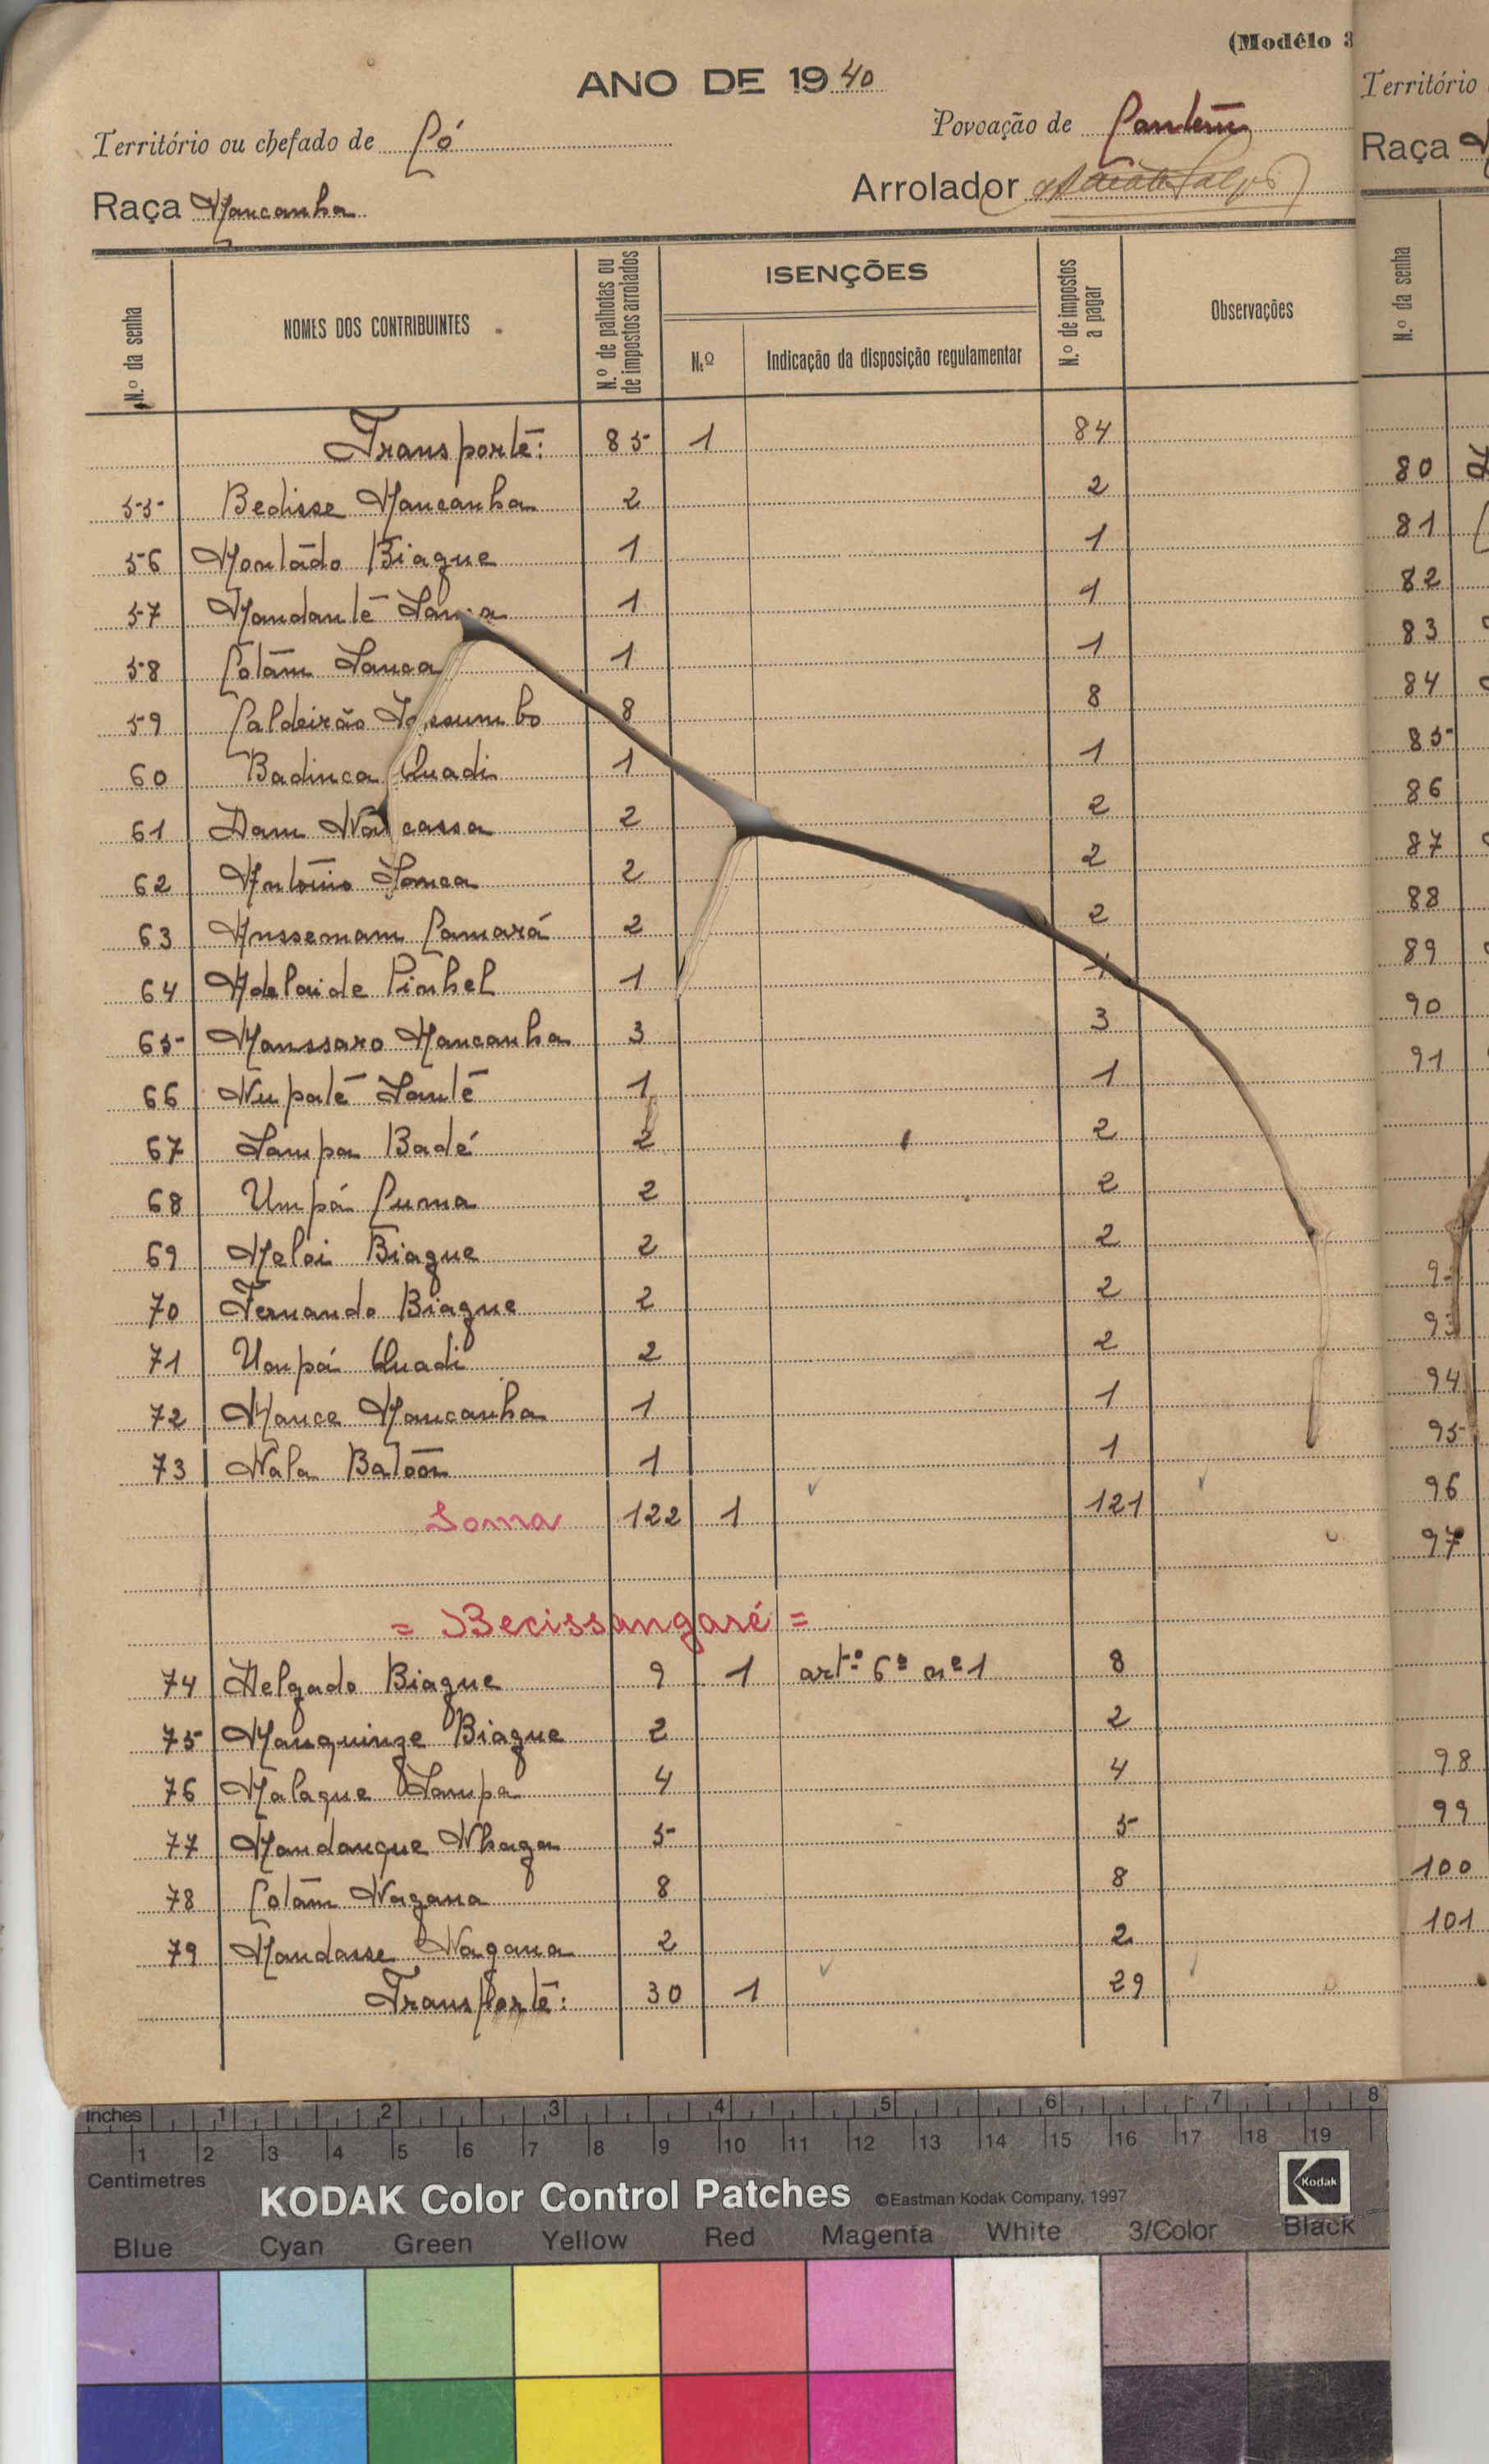 (Modêlo 3
ANO DE 1940
Território ou chefado de Có
Povoação de
Raça Mancanha
Arrolador
N.º da senha
NOMES DOS CONTRIBUINTES
N.º de palhotas ou de impostos arrolados
ISENÇÕES
N.º
Indicação da disposição regulamentar
N.º de impostos a pagar
Observações
Transporte: 85 1 84
55 Bedisse Mancanha 2 2
56 Montádo Biague 1 1
57 Mandanté 1 1
58 Cotam Sanca 1 1
59 Caldeirão 8 8
60 Badinca Quadi 1 1
61 Dam 2 2
62 António Sanca 2 2
63 Mussemam Camará 2 2
64 Adelaide Pinhel 1 1
65 Manssaro Mancanha 3 3
66 Nupaté Santé 1 1
67 Sampa Badé 2 2
68 Umpá Cuma 2 2
69 Meloi Biague 2 2
70 Fernando Biague 2 2
71 Umpá Quadi 2 2
72 Mance Mancanha 1 1
73 Nala Batóon 1 1
Soma 122 1 121
= Becissangaré =
74 Delgado Biague 9 1 artº 6º nº 1 8
75 Manquinze Biague 2 2
76 Malaque Sampa 4 4
77 Mandanque Nhaga 5 5
78 Cotam Nagana 8 8
79 Mandasse Nagana 2 2
Transporte: 30 1 29
Território
Raça
N.º da senha
80
81
82
83
84
85
86
87
88
89
90
91
93
94
95
96
97
98
99
100
101
inches 1 2 3 4 5 6 7 8
1 2 3 4 5 6 7 8 9 10 11 12 13 14 15 16 17 18 19
Centimetres
KODAK Color Control Patches ©Eastman Kodak Company, 1997 Kodak
Blue Cyan Green Yellow Red Magenta White 3/Color Black